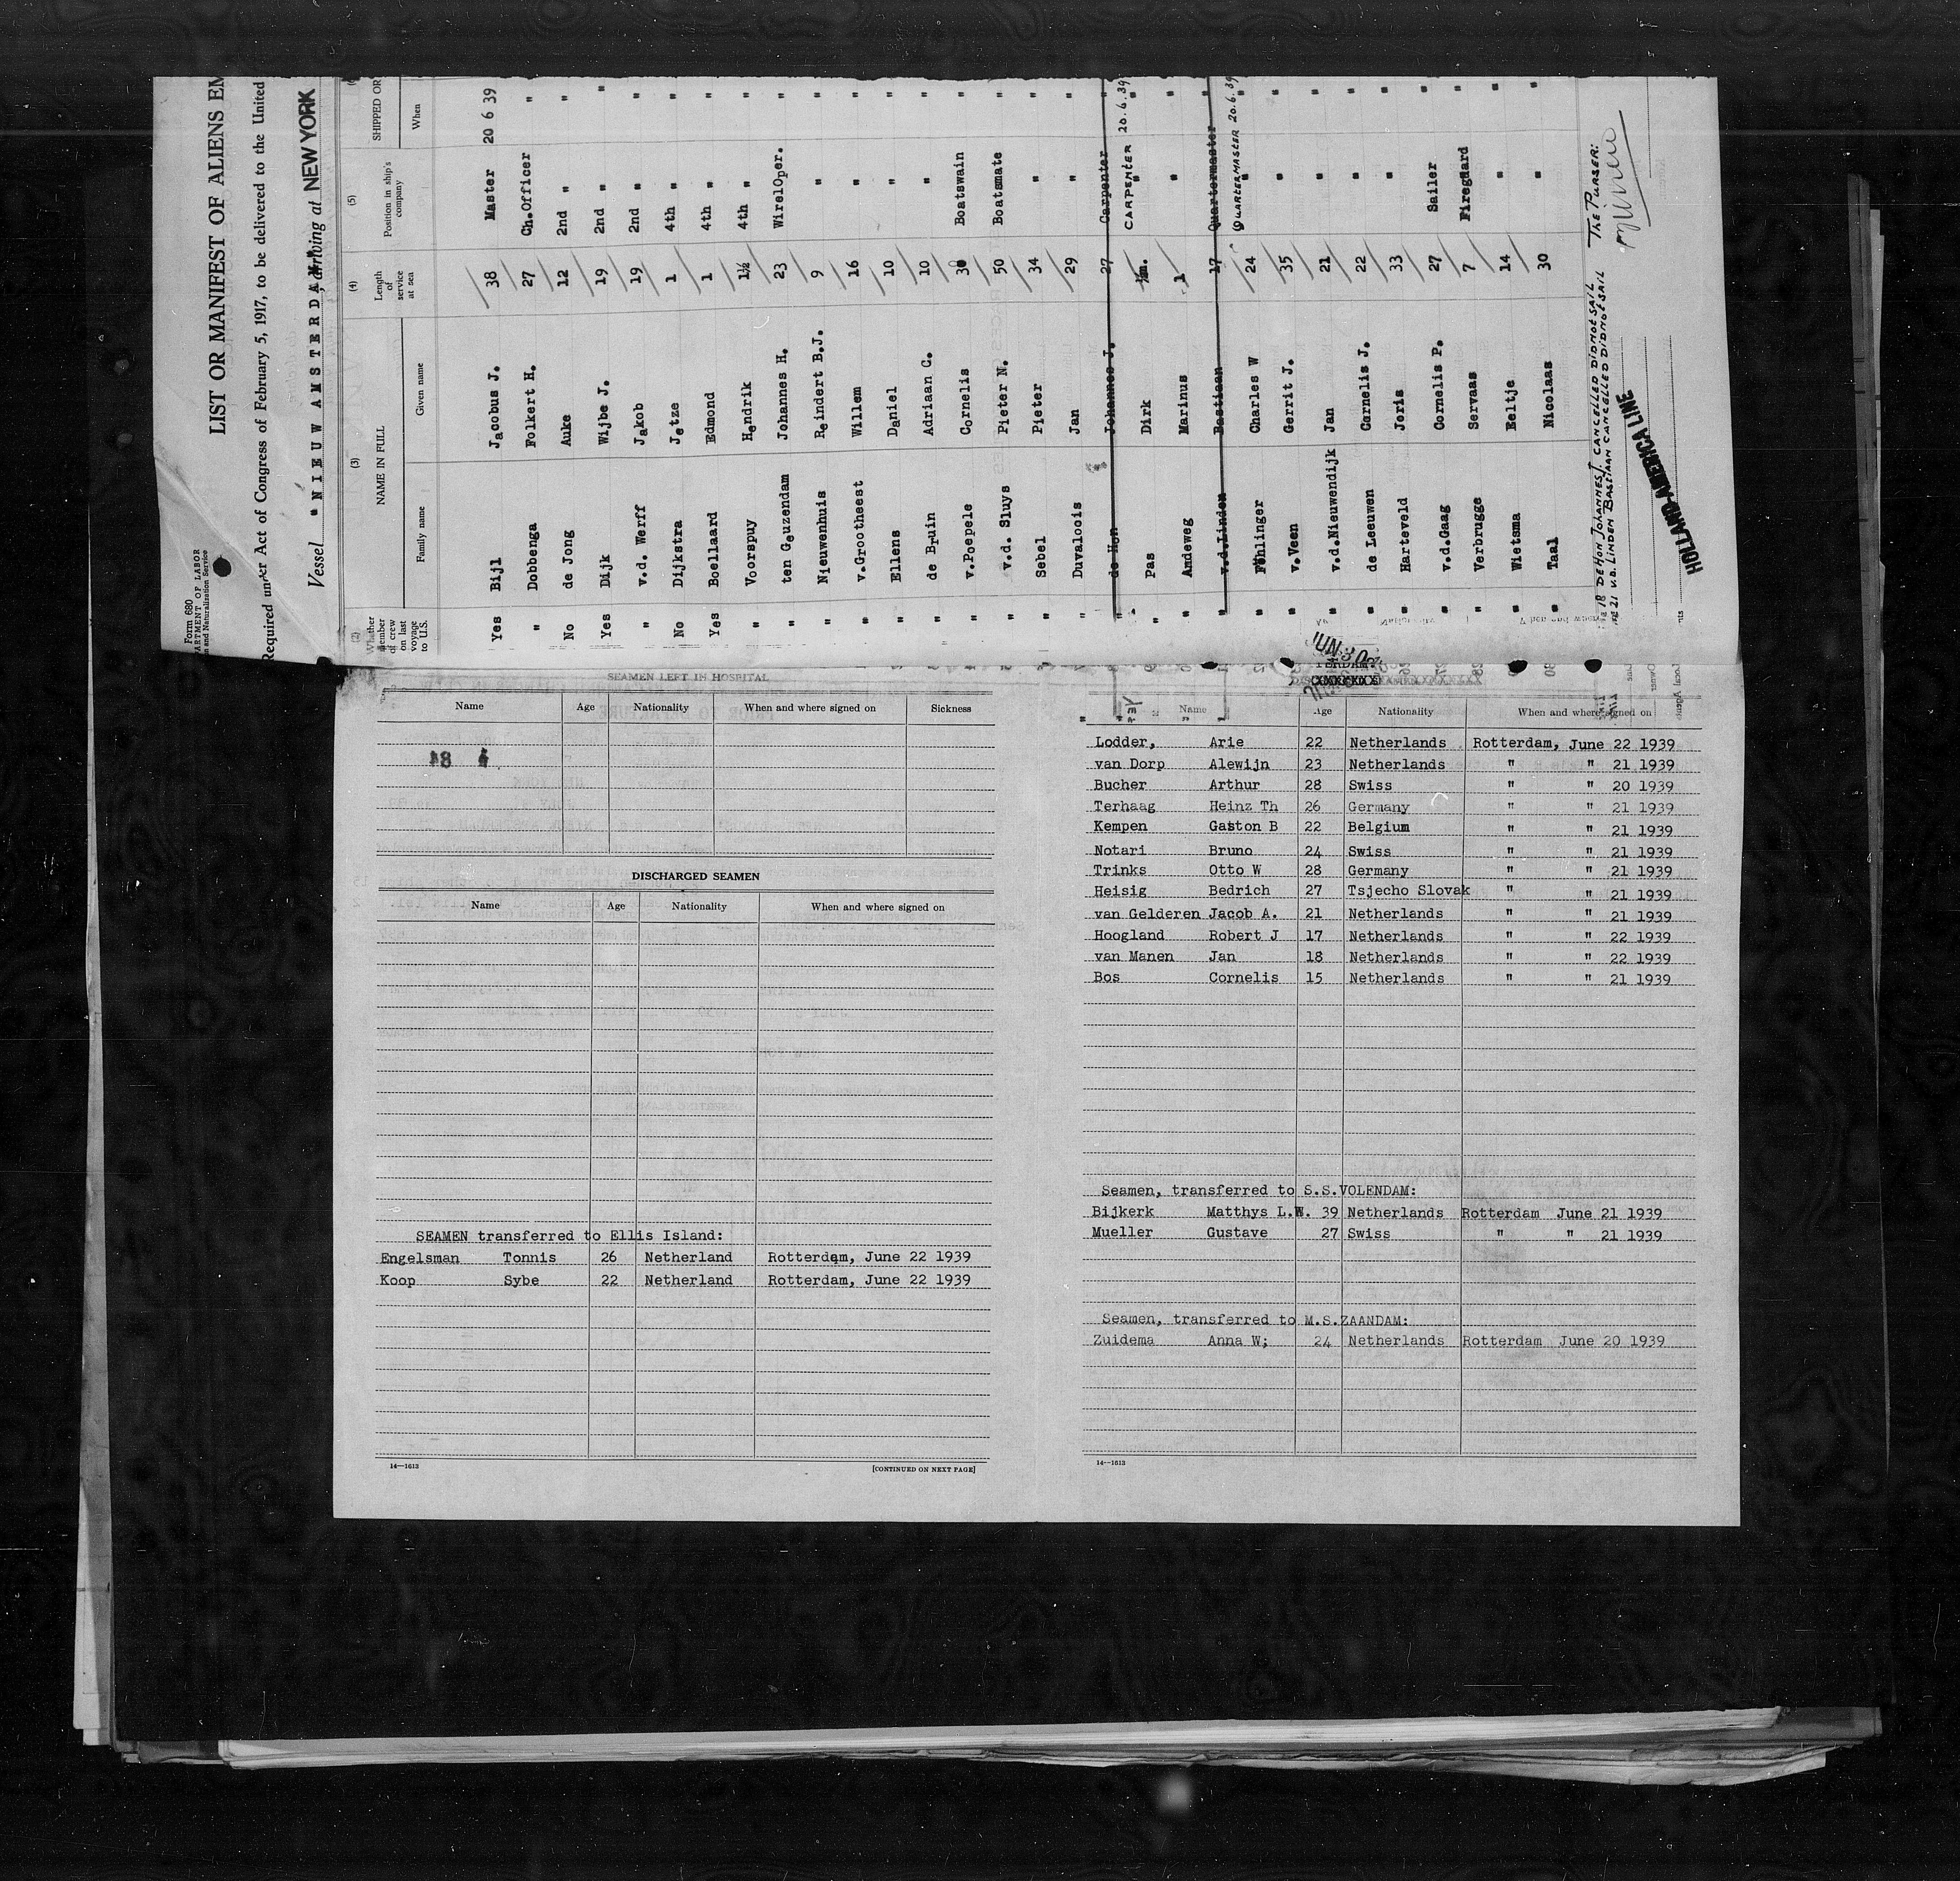 Form 680
LIST OR MANIFEST OF ALIENS EM
Required under Act of Congress of February 5, 1917, to be delivered to the United
Vessel "NIEUW AMSTERDAM", arriving at NEW YORK
(2) (3) (4) (5)
Whether member of crew on last voyage to U.S. NAME IN FULL Length of service at sea Position in ship's company SHIPPED OR
Family name Given name When
Yes Bijl Jacobus J. 38 Master 20 6 39
" Dobbenga Folkert H. 27 Ch.Officer "
No de Jong Auke 12 2nd " "
Yes Dijk Wijbe J. 19 2nd " "
" v.d. Werff Jakob 19 2nd " "
No Dijkstra Jetze 1 4th " "
Yes Boellaard Edmond 1 4th " "
" Voorspuy Hendrik 1½ 4th " "
" ten Geuzendam Johannes H. 23 WirelOper. "
" Nieuwenhuis Reindert B.J. 9 " "
" v.Grootheest Willem 16 " "
" Ellens Daniel 10 " "
" de Bruin Adriaan C. 10 " "
" v.Poepele Cornelis 30 Boatswain "
" v.d. Sluys Pieter N. 50 Boatsmate "
" Sebel Pieter 34 " "
" Duvaloois Jan 29 " "
" de Hon Johannes J. 27 Carpenter "
CARPENTER 20.6.39
" Pas Dirk 1½m. " "
" Andeweg Marinus 1 " "
" v.d.Linden Bastiaan 17 Quartermaster "
QUARTERMASTER 20.6.39
" Föhlinger Charles W 24 " "
" v.Veen Gerrit J. 35 " "
" v.d.Nieuwendijk Jan 21 " "
" de Leeuwen Cornelis J. 22 " "
" Harteveld Joris 33 " "
" v.d.Gaag Cornelis P. 27 Sailer "
" Verbrugge Servaas 7 Fireguard "
" Wietsma Eeltje 14 " "
" Taal Nicolaas 30 " "
18 DE HON JOHANNES J. CANCELLED DID NOT SAIL THE PURSER:
21 V.D. LINDEN BASTIAAN CANCELLED DID NOT SAIL
HOLLAND-AMERICA LINE
SEAMEN LEFT IN HOSPITAL
Name Age Nationality When and where signed on Sickness
DISCHARGED SEAMEN
Name Age Nationality When and where signed on
SEAMEN transferred to Ellis Island:
Engelsman Tonnis 26 Netherland Rotterdam, June 22 1939
Koop Sybe 22 Netherland Rotterdam, June 22 1939
14—1613 [CONTINUED ON NEXT PAGE]
Name Age Nationality When and where signed on
Lodder, Arie 22 Netherlands Rotterdam, June 22 1939
van Dorp Alewijn 23 Netherlands " " 21 1939
Bucher Arthur 28 Swiss " " 20 1939
Terhaag Heinz Th 26 Germany " " 21 1939
Kempen Gaston B 22 Belgium " " 21 1939
Notari Bruno 24 Swiss " " 21 1939
Trinks Otto W 28 Germany " " 21 1939
Heisig Bedrich 27 Tsjecho Slovak " " 21 1939
van Gelderen Jacob A. 21 Netherlands " " 21 1939
Hoogland Robert J 17 Netherlands " " 22 1939
van Manen Jan 18 Netherlands " " 22 1939
Bos Cornelis 15 Netherlands " " 21 1939
Seamen, transferred to S.S.VOLENDAM:
Bijkerk Matthys L.W. 39 Netherlands Rotterdam June 21 1939
Mueller Gustave 27 Swiss " " 21 1939
Seamen, transferred to M.S.ZAANDAM:
Zuidema Anna W; 24 Netherlands Rotterdam June 20 1939
14—1613